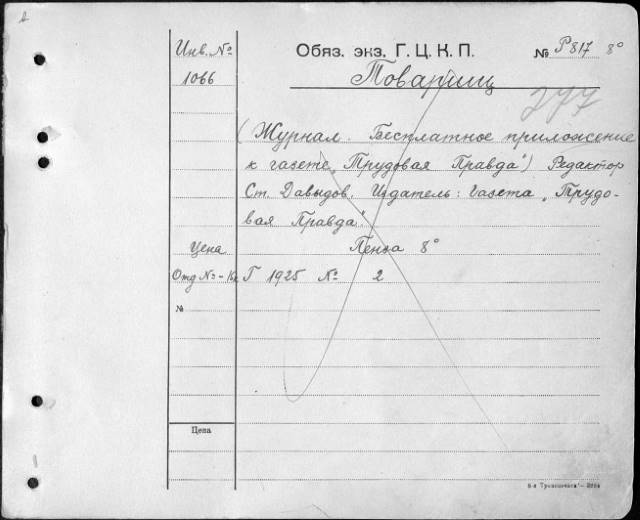 Инв. №
1066
Обяз. экз. Г. Ц. К. П.
№ Р817 8°
Товарищ
277
(Журнал. Бесплатное приложение
к газете „Трудовая Правда") Редактор
Ст. Давыдов. Издатель: Газета „Трудо-
вая Правда".
Цена
Пенза 8°
Отд №-
Г 1925 № 2
№
Цена